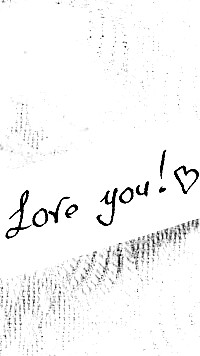 Love you! ♡